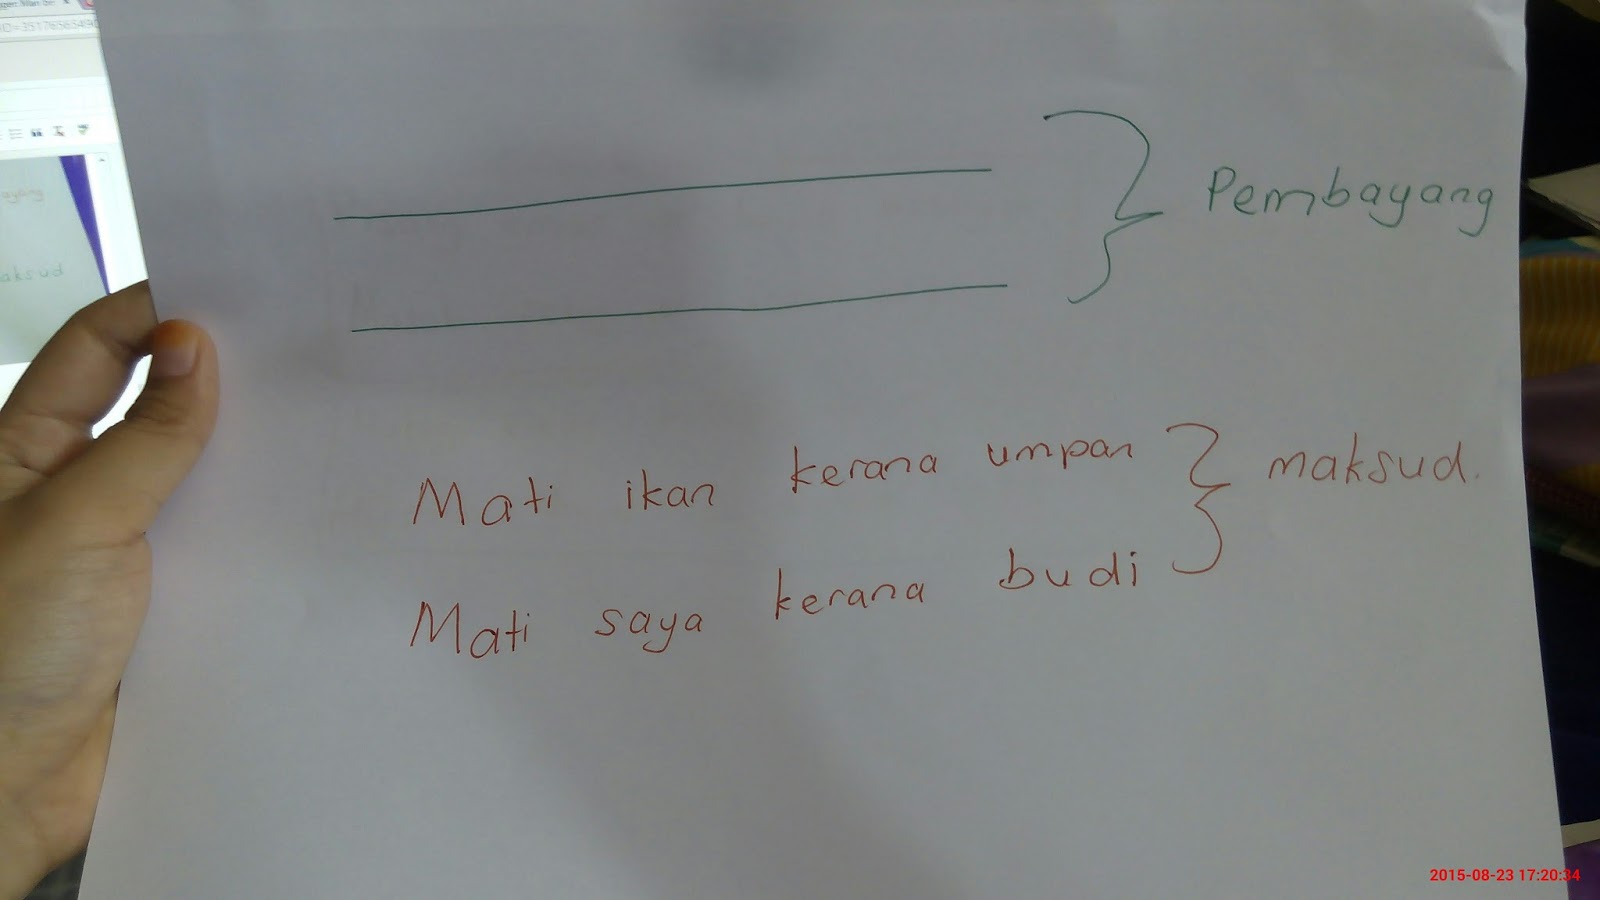 Pembayang
Mati ikan kerana umpan
maksud.
Mati saya kerana budi
ayang
aksud
2015-08-23 17:20:34